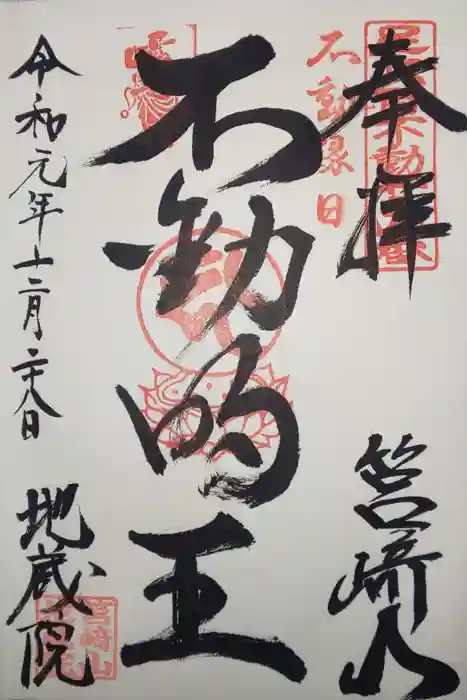 奉拝
筥崎山
不動縁日
不動明王
令和元年十二月二十八日
地蔵院
筥崎山